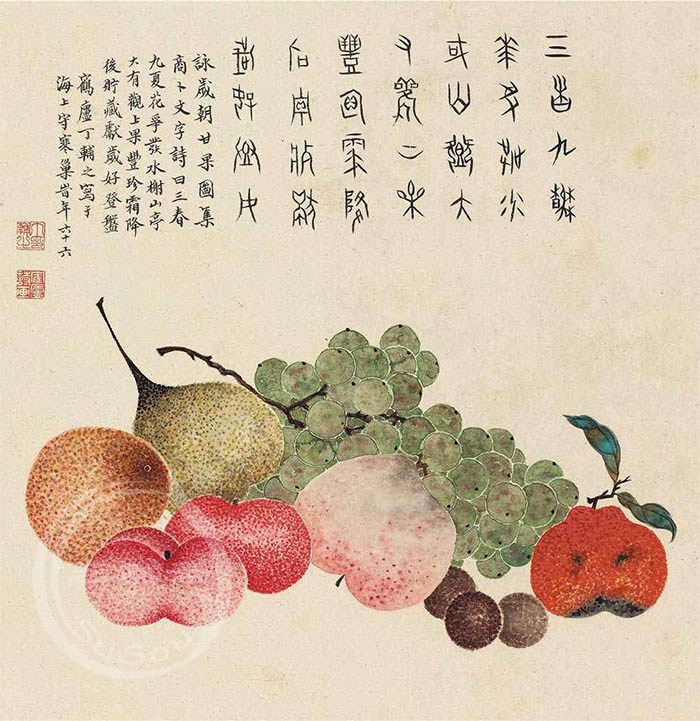 三春九夏
華爭發水
榭山亭大
有觀上果
豐珍霜降
後貯藏獻
歲好登盤
詠歲朝甘果圖集
商卜文字詩曰三春
九夏花爭發水榭山亭
大有觀上果豐珍霜降
後貯藏獻歲好登盤
鶴廬丁輔之寫于
海上守寒巢旹年六十六